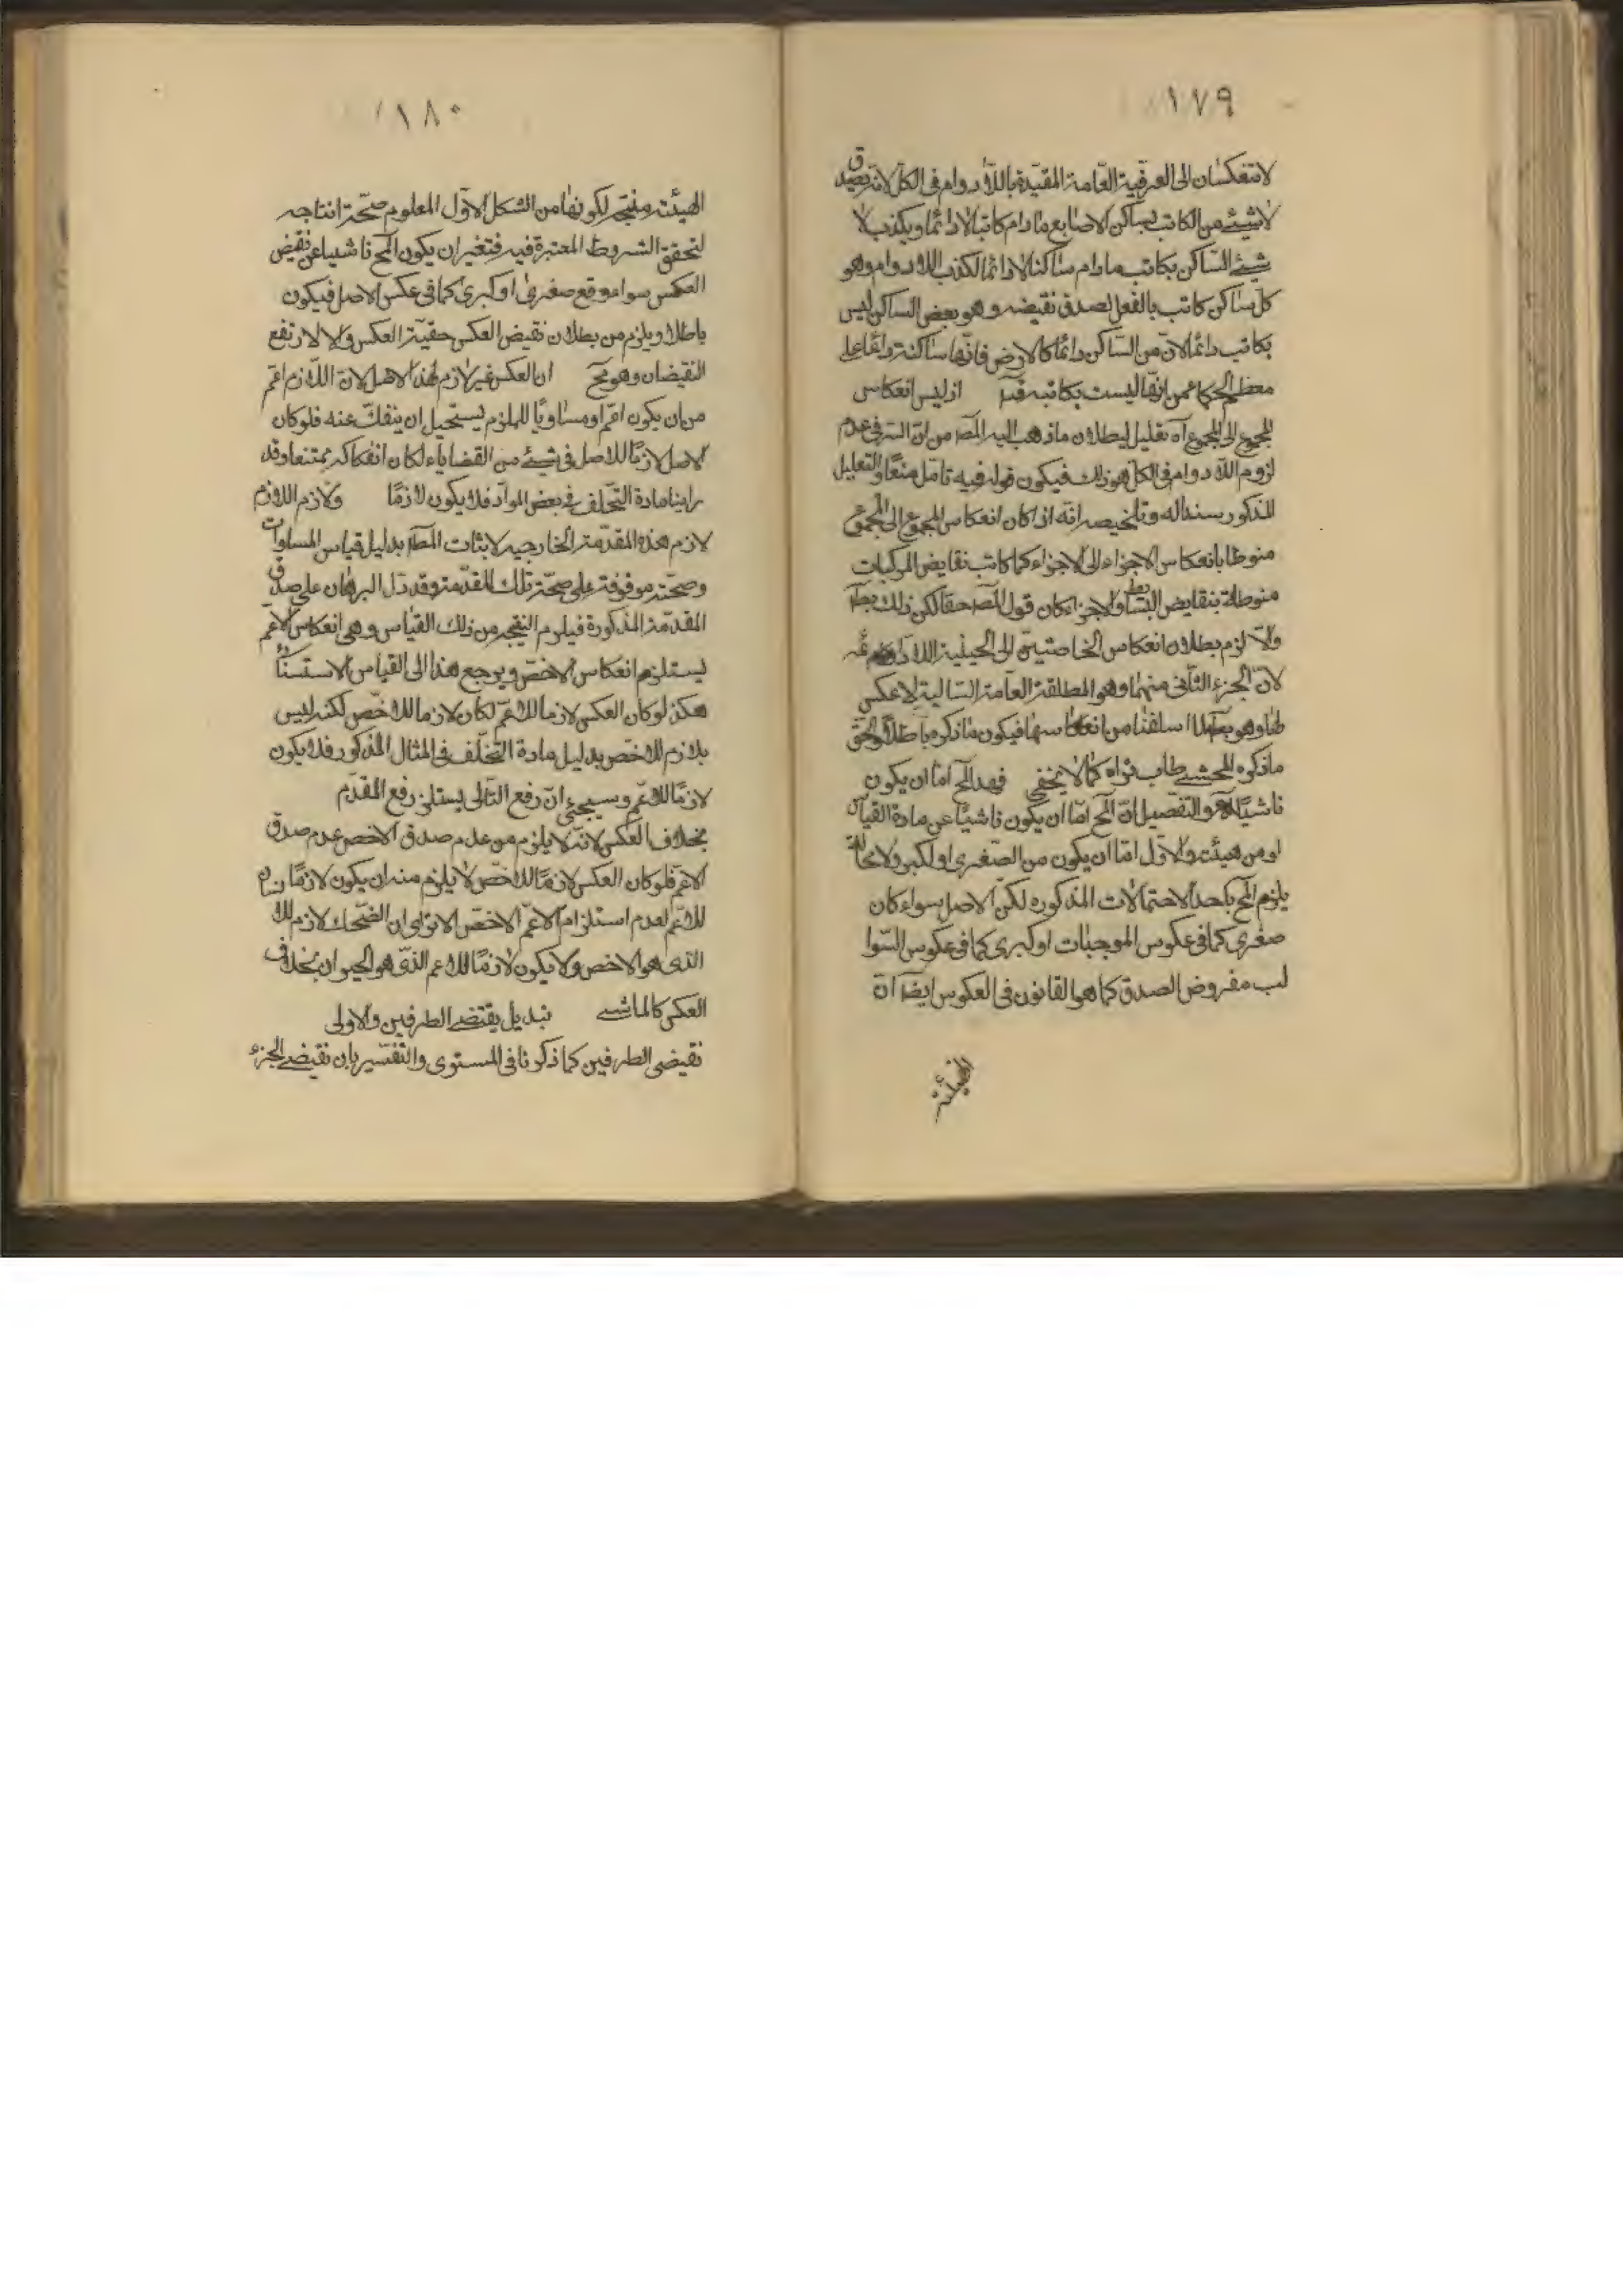 ١٧٩
لا تنعكسان الى العرفية العامة المقيدة باللادوام فى الكل لانه يصدق
لا شيئ من الكاتب بساكن الاصابع ما دام كاتبا لا دائما ويكذب لا
شيئ الساكن بكاتب ما دام ساكنا لا دائما لكذب اللادوام وهو
كل ساكن كاتب بالفعل لصدق نقيضه وهو بعض الساكن ليس
بكاتب دائما لان من الساكن دائما كالارض فانها ساكنة دائما على
معظم الحكماء من انها ليست بكاتبه اذ ليس انعكاس
المجموع الى المجموع آه تعليل لبطلان ما ذهب اليه المصـ من ان السر فى عدم
لزوم اللادوام فى الكل هو ذلك فيكون قوله فيه تامل منعا والتعليل
المذكور سندا له وتلخيصه انه اذا كان انعكاس المجموع الى المجموع
منوطا بانعكاس الاجزاء الى الاجزاء كما كانت نقايض المركبات
منوطة بنقايض البسايط والاجزاء كان قول المصـ حقا لكن ذلك بط
والا لزم بطلان انعكاس الخاصتين الى الحينية اللادائمه
لان الجزء الثانى منهما وهو المطلقة العامة السالبة لا عكس
لها وهو بط لما اسلفنا من انعكاسهما فيكون ما ذكره باطلا والحق
ما ذكره المحشى طاب ثراه كما لا يخفى فهذا المح اما ان يكون
ناشيا آه والتفصيل ان المح اما ان يكون ناشيا عن مادة القياس
او من هيئته والاول اما ان يكون من الصغرى او الكبرى ولا محالة
يلزم المح باحد الاحتمالات المذكوره لكن الاصل سواء كان
صغرى كما فى عكوس الموجبات او كبرى كما فى عكوس السوا
لب مفروض الصدق كما هو القانون فى العكوس ايضا ان
الهيئته
١٨٠
الهيئته منتجه لكونها من الشكل الاول المعلوم صحة انتاجه
لتحقق الشروط المعتبرة فيه فتعين ان يكون المح ناشيا عن نقيض
العكس سواء وقع صغرى او كبرى كما فى عكس الاصل فيكون
باطلا ويلزم من بطلان نقيض العكس حقية العكس والا لارتفع
النقيضان وهو مح ان العكس غير لازم لهذا الاصل لان اللازم اعم
من ان يكون اعم او مساويا للملزوم يستحيل ان ينفك عنه فلو كان
الاصل لازما للاصل فى شيئ من القضاياء لكان انفكاكه ممتنعا وقد
راينا مادة التخلف فى بعض المواد فلا يكون لازما ولازم اللازم
لازم هذه المقدمة الخارجيه لاثبات المط بدليل قياس المساوات
وصحته موقوفة على صحة تلك المقدمة وقد دل البرهان على صدق
المقدمة المذكورة فيلزم النتيجه من ذلك القياس وهى انعكاس الاعم
يستلزم انعكاس الاخص ويرجع هذا الى القياس الاستثنائى
هكذ لو كان العكس لازما للاعم لكان لازما للاخص لكنه ليس
بلازم للاخص بدليل مادة التخلف فى المثال المذكور فلا يكون
لازما للاعم وسيجئ ان رفع التالى يستلزم رفع المقدم
بخلاف العكس لانه لا يلزم من عدم صدق الاخص عدم صدق
الاعم فلو كان العكس لازما للاخص لا يلزم منه ان يكون لازما
للاعم لعدم استلزام الاعم الاخص الا ترى ان الضحك لازم للا
الذى هو الاخص ولا يكون لازما للاعم الذى هو الحيوان بخلاف
العكس كالماشى تبديل يقتضى الطرفين والاولى
نقيضى الطرفين كما ذكرنا فى المستوى والتفسير بان نقيضى الجزء